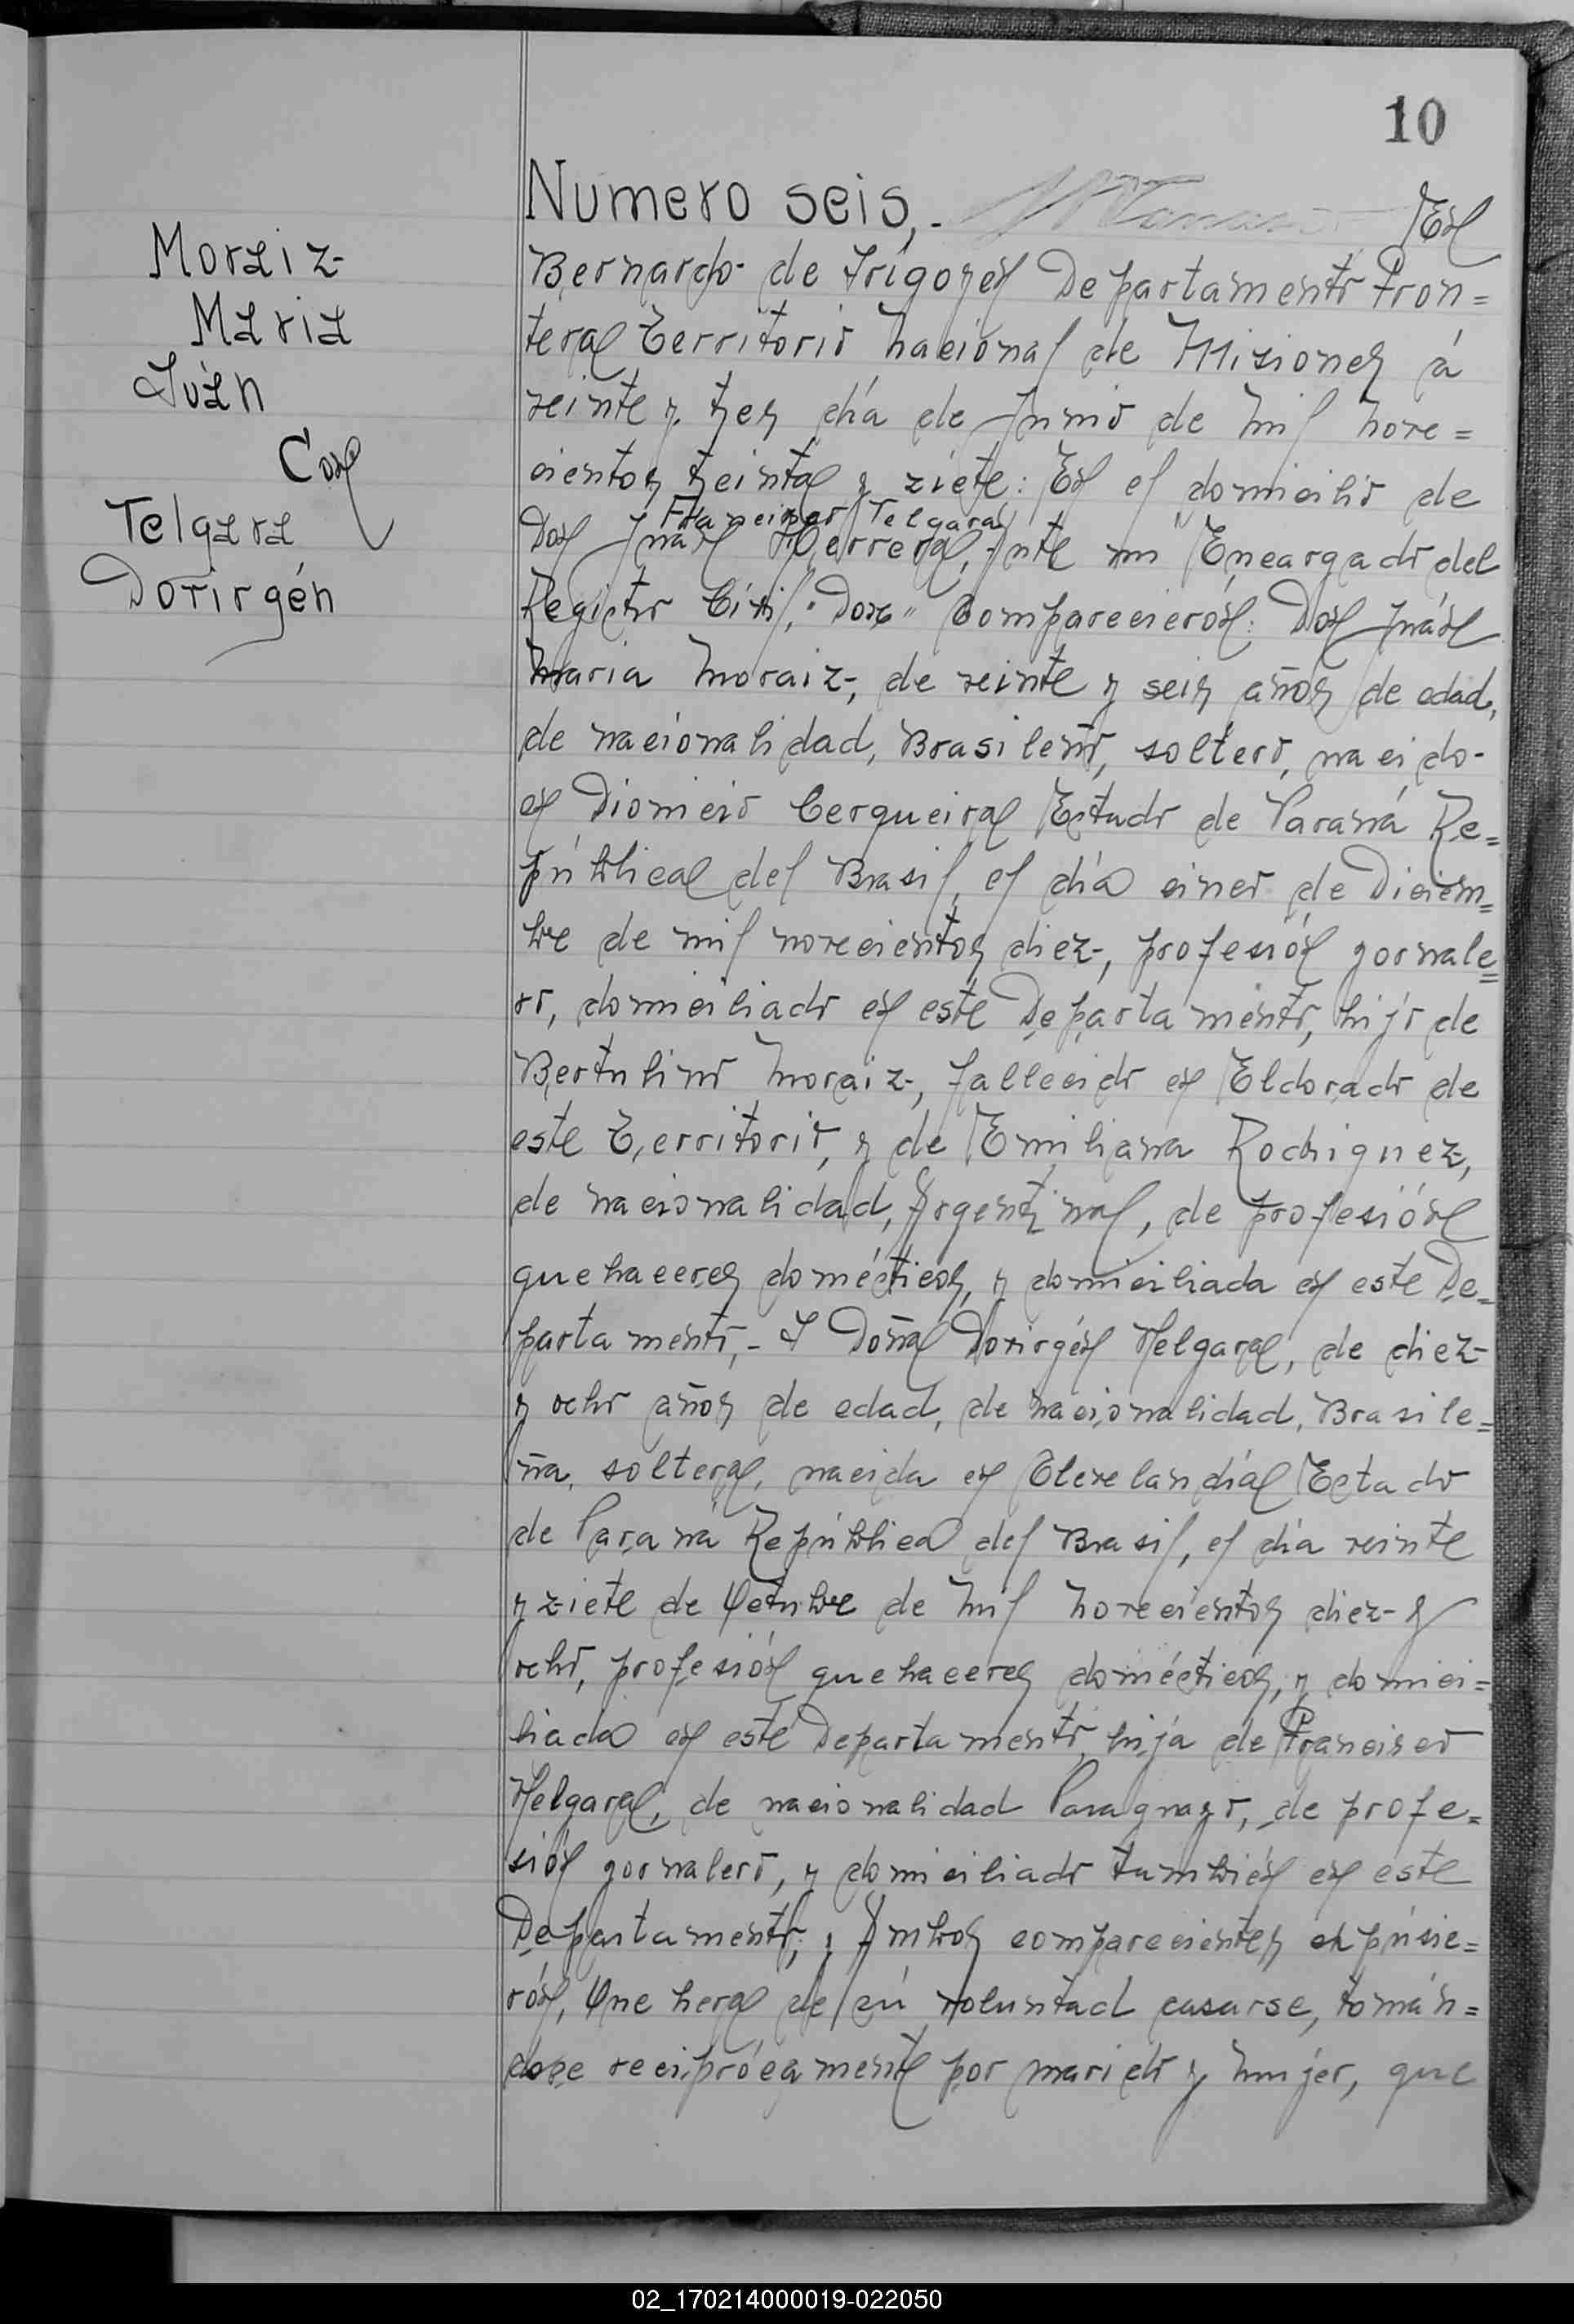 10
Numero seis,.- En
Moraiz-
Maria
Juán
Con
Telgara
Dorirgén
Bernardo de Irigoyen Departamento Fron=
tera Territorio Nacional de Misiones á
veinte y tres día de Junio de mil nove=
cientos treinta y siete: En el domicilio de
Francisco Telgara
Don Juan Herrera, Ante mi Encargado del
Registro Civil, "Don" Comparecierón: Don Juán
Maria Moraiz-, de veinte y seis años de edad,
de nacionalidad, Brasileño, soltero, nacido-
en Dionicio Cerqueira Estado de Paraná Re=
pública del Brasil, el día cinco de Diciem=
bre de mil novecientos diez-, profesión gornale=
ro, domiciliado en este Departamento, hijo de
Bertulino Moraiz-, fallecido en Eldorado de
este Territorio, y de Emiliana Rodriguez,
de nacionalidad, Argentina, de profesión
quehaceres doméstico, y domiciliada en este De=
partamento,- I Doña Dorirgén Helgara, de diez-
y ocho años de edad, de nacionalidad, Brasile=
ña, soltera, nacida en Clevelandia Estado
de Paraná República del Brasil, el día veinte
y ziete de Octubre de mil novecientos diez- y
ocho, profesión quehaceres doméstico, y domici=
liada en este Departamento, hija de Francisco
Helgara, de nacionalidad Paraguayo, de profe=
sión gornalero, y domiciliado tambien en este
Departamento; Ambos comparecientes expusie=
rón, Que hera de sú voluntad casarse, tomán=
dose recíprócamente por marido y mujer, que
02_170214000019-022050